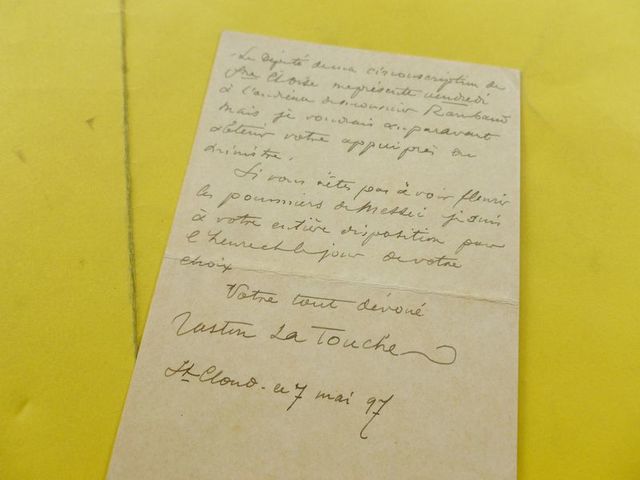 Le Député de ma circonscription de
me présente vendredi
à l'audience de monsieur Rambaud
mais je voudrais auparavant
obtenir votre appui près du
ministre.
Si vous n'êtes pas à voir fleurir
les pommiers de Messei je suis
à votre entière disposition pour
l'heure et le jour de votre
choix
Votre tout dévoué
Gaston La Touche
St Cloud. ce 7 mai 97